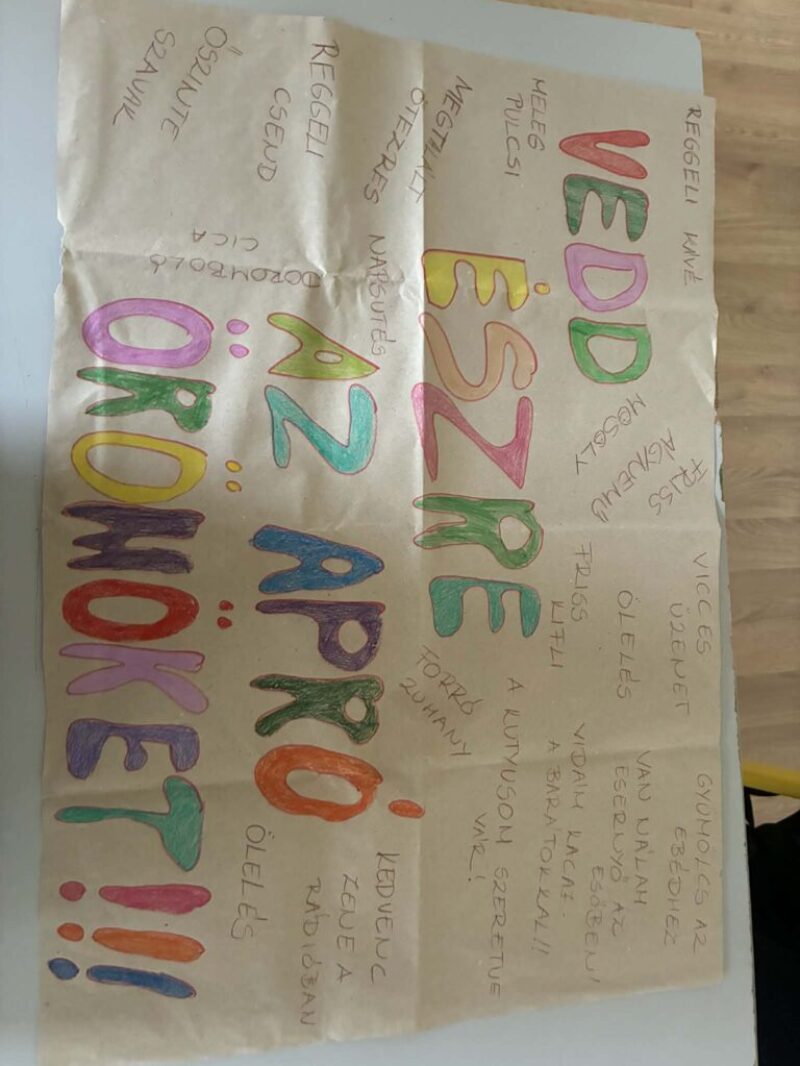 REGGELI KÁVÉ
MELEG
PULCSI
VEDD
FRISS
ÁGYNEMŰ
MOSOLY
VICCES
ÜZENET
ÖLELÉS
FRISS
KIFLI
GYÜMÖLCS AZ
EBÉDHEZ
VAN NÁLAM
ESERNYŐ AZ
ESŐBEN!
VIDÁM KACAJ
A BARÁTOKKAL!!
A KUTYUSOM SZERETVE
VÁR!
MEGTALÁLT
ÖTEZRES
ÉSZRE
FORRÓ
ZUHANY
NAPSÜTÉS
REGGELI
CSEND
AZ APRÓ
KEDVENC
ZENE A
RÁDIÓBAN
ŐSZINTE
SZAVAK
DOROMBOLÓ
CICA
ÖLELÉS
ÖRÖMÖKET!!!